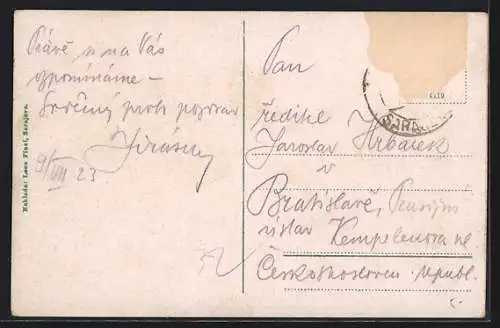 Právě u na Vás
vzpomínáme —
Srdečný pozdrav
9/VIII 23
Naklada: Leon Finzi, Sarajevo.
Pan
ředitel
Jaroslav Hrbáček
v
Bratislavě, Pensijní
ústav Kempelenova ul.
Českosloven. republ.
SARA